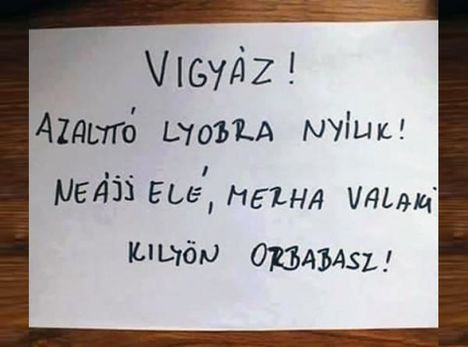 VIGYÀZ!
AZALYTÓ LYOBRA NYÍLIK!
NEÁJJ ELÉ, MERHA VALAKI
KILYÖN ORBABASZ!